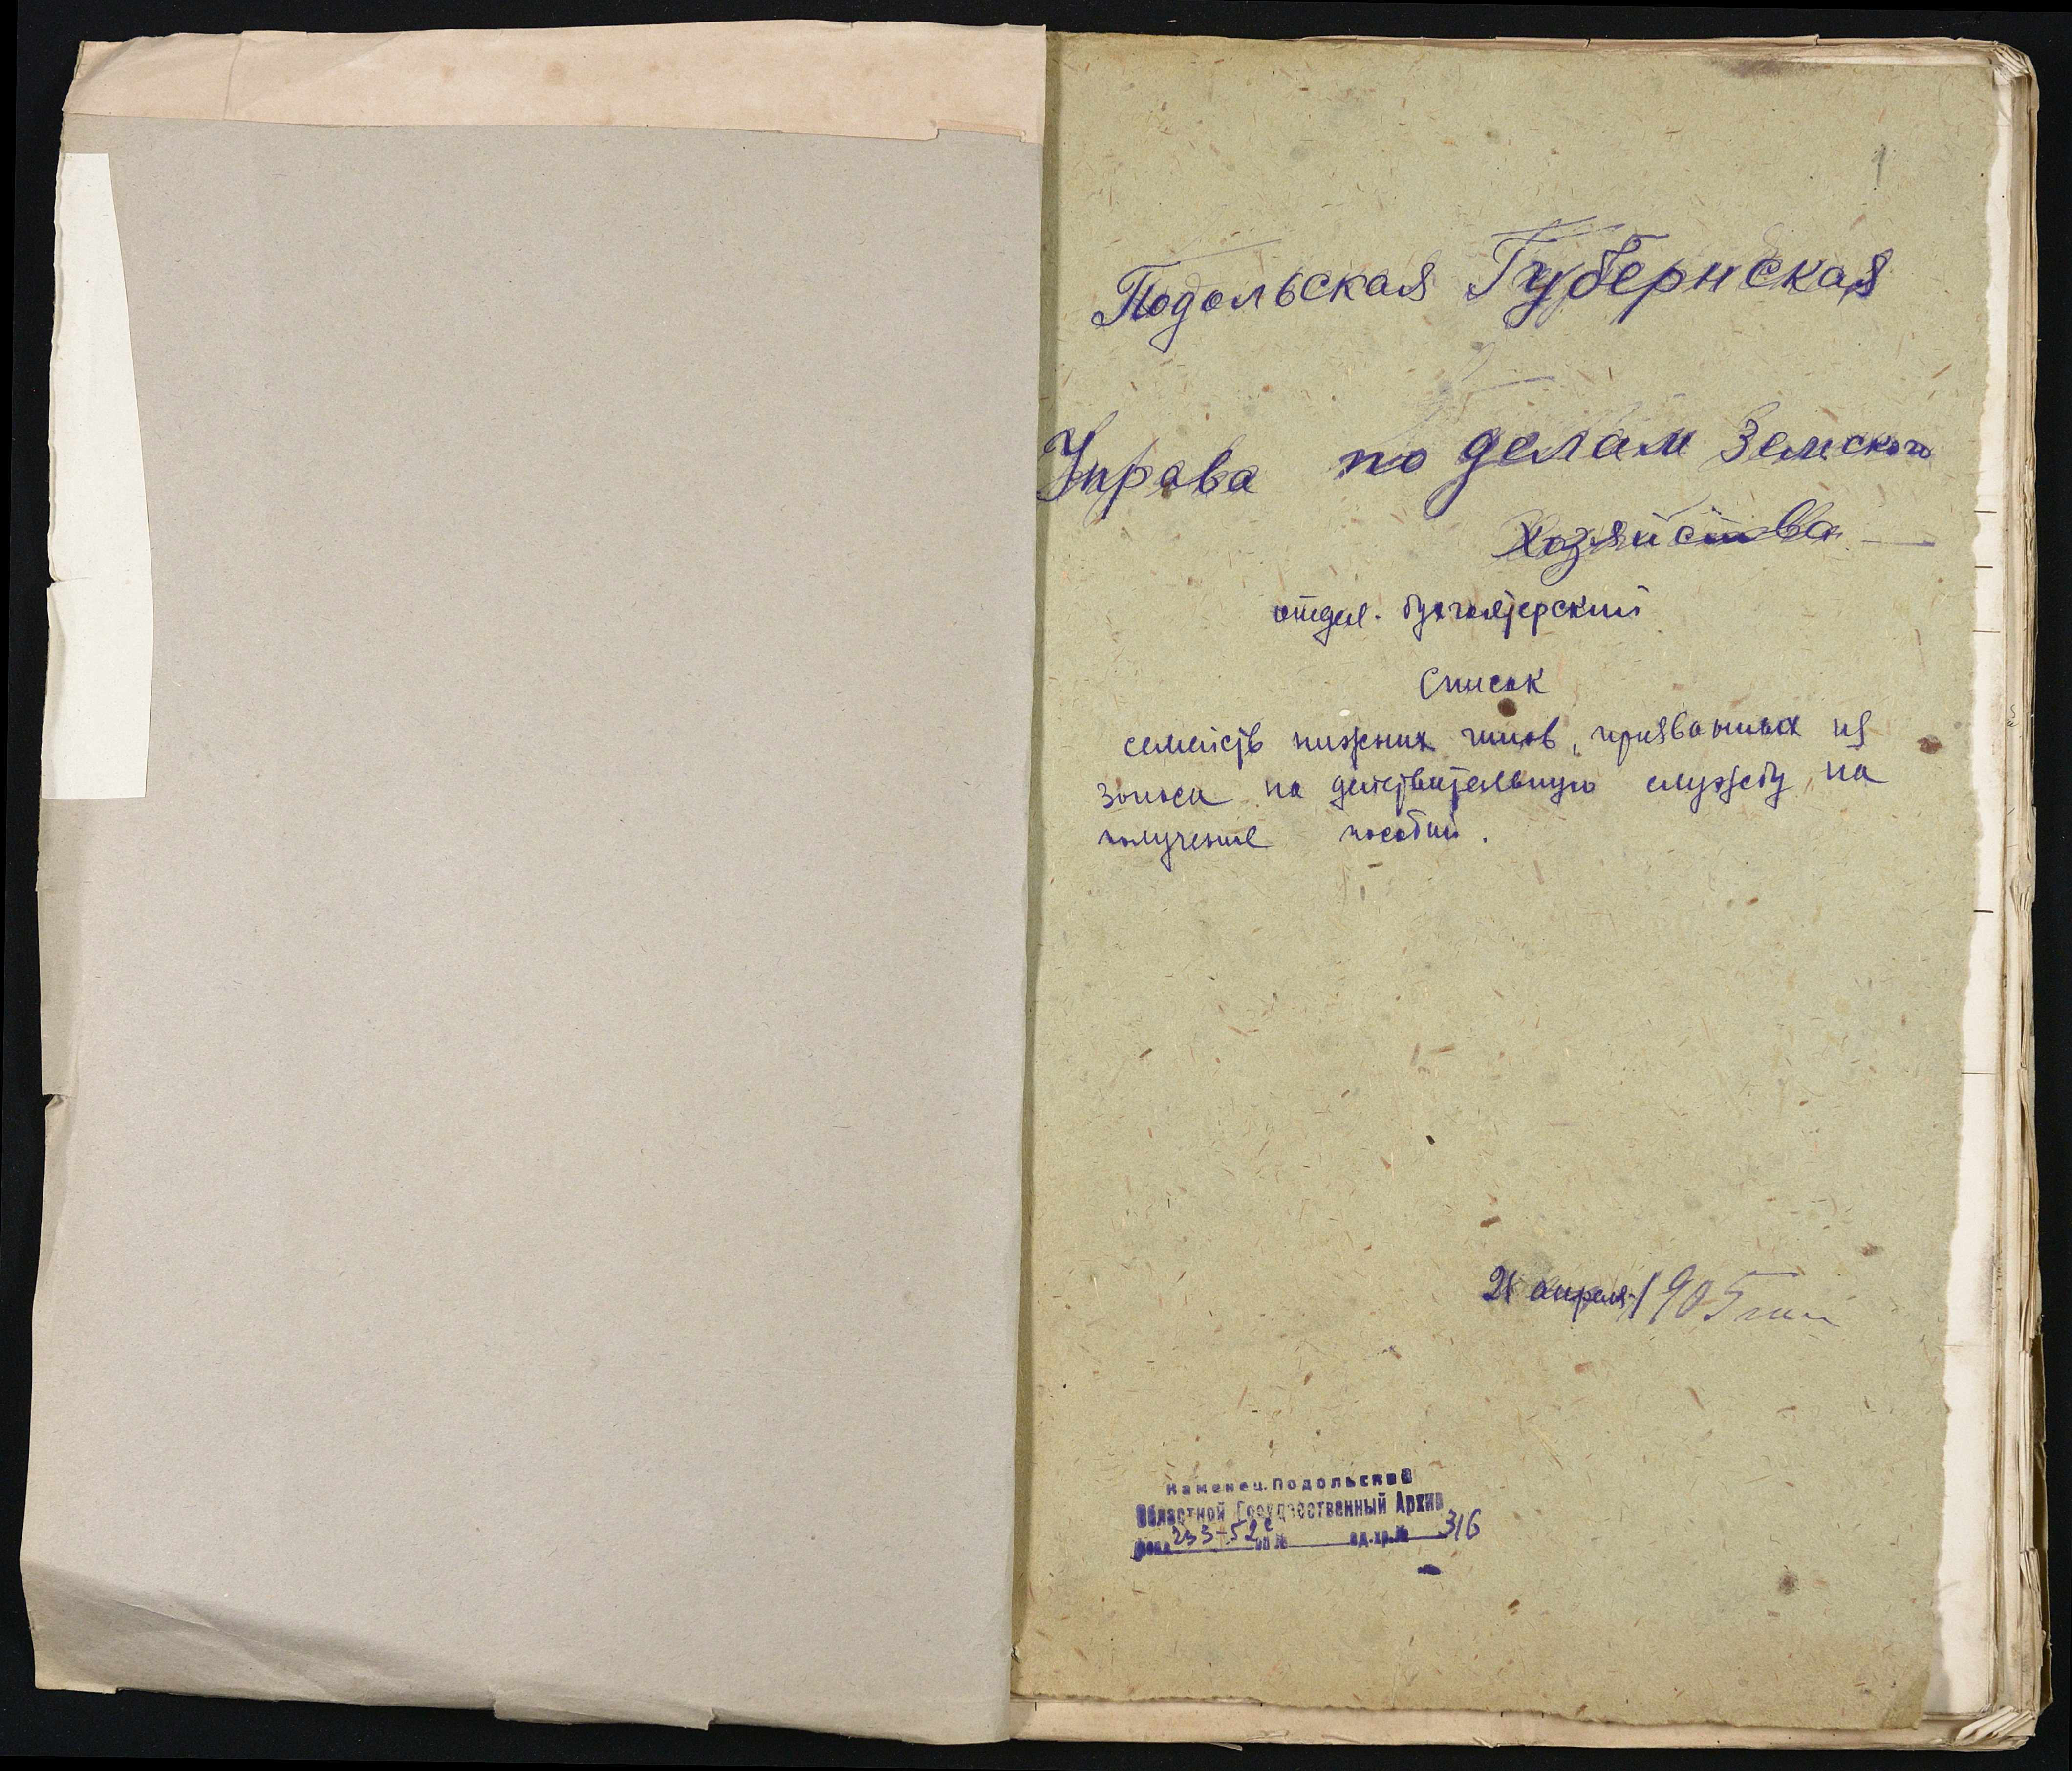 1
Подольская Губернская
Управа по делам Земского
Хозяйства
отдел. бухгалтерский
Список
семейств нижних чинов, призванных из
запаса на действительную службу, на
получение пособий.
21 апреля 1905
Каменец-Подольский
Областной Государственный Архив
Фонд 233-52с оп № ед.хр.№ 316